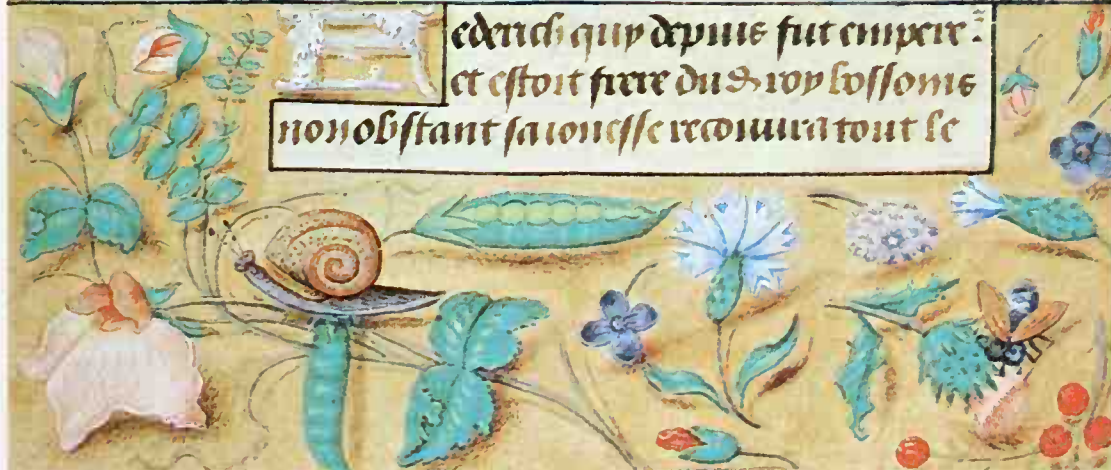 ederich quy depuis fut empere:
et estoit frere du roy
nonobstant sa ionesse recouura tout le